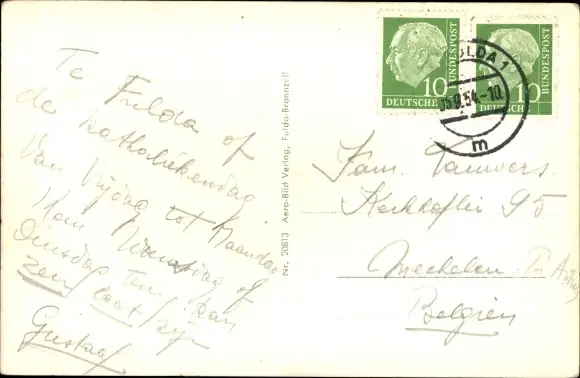 Te Fulda of
de Katholiekendag
Van Vrijdag tot Maandag
Kom Woensdag of
Dinsdag terug kan
zeer laat zijn
Gustaaf
Nr. 20813 Aero-Bild Verlag, Fulda-Bronnzell
10
DEUTSCHE BUNDESPOST
10
DEUTSCHE BUNDESPOST
FULDA 1
9.54.-10
m
Fam. Lauwers
95
Mechelen
Belgien